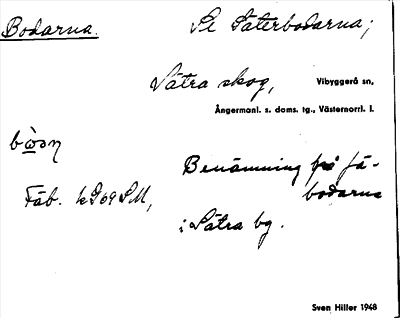 Bodarna. Se Säterbodarna;
Sätra skog, Vibyggerå sn,
Ångermanl. s. doms. tg., Västernorrl. l.
Benämning på fä-
bodarna
Fäb.
i Sätra bg.
Sven Hiller 1948